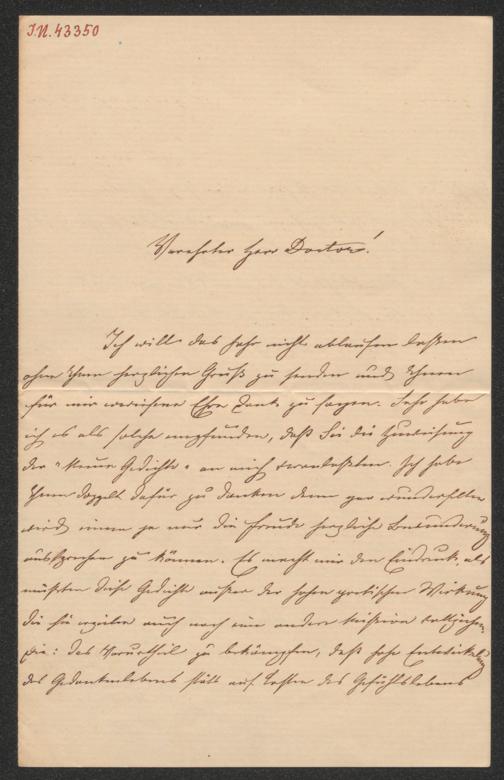 I.N. 43350
Verehrter Herr Doctor!
Ich will das Jahr nicht ablaufen lassen
ohne Ihnen herzlichen Gruß zu senden und Ihnen
für mir erwiesene Ehre Dank zu sagen. Sehr habe
ich es als solche empfunden, daß Sie die Zuweisung
der "Neuen Gedichte" an mich veranlaßten. Ich habe
Ihnen doppelt dafür zu danken denn gar wunderselten
wird einem ja nur die Freude herzliche Bewunderung
aussprechen zu können. Es macht mir den Eindruck, als
müßten diese Gedichte außer der hohen poetischen Wirkung
die sie erzielen auch noch eine andere Mission vollziehen,
die: das Vorurtheil zu bekämpfen, daß hohe Entwickelung
des Gedankenlebens stätt auf Kosten des Gefühlslebens